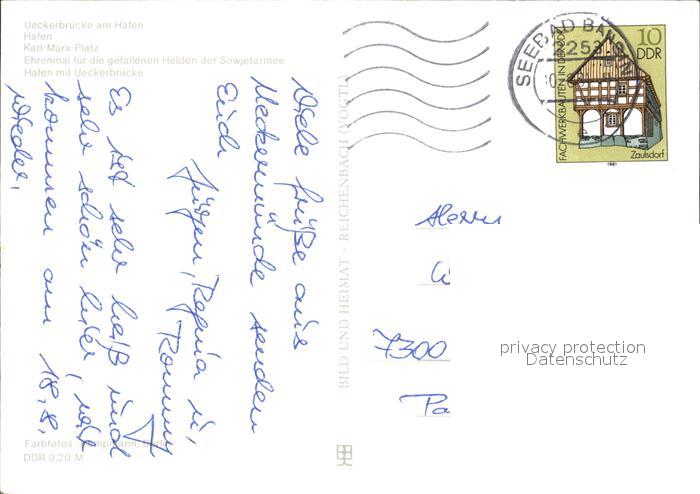 Ueckerbrücke am Hafen
Hafen
Karl-Marx-Platz
Ehrenmal für die gefallenen Helden der Sowjetarmee
Hafen mit Ueckerbrücke
Viele Grüße aus
Ueckermünde senden
Euch
Jürgen, Regina u.
Ronny
Es ist sehr heiß und
sehr schön hier, wir
kommen am 18.8.
wieder.
Farbfotos: Berlin
DDR 0,20 M
BILD UND HEIMAT · REICHENBACH (VOGTL)
SEEBAD BANSIN
2253
10
DDR
FACHWERKBAUTEN IN DER DDR
Zaulsdorf
1981
Herrn
W
7300
Pa
privacy protection
Datenschutz